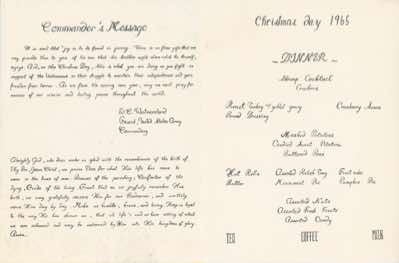 Commander's Message
It is said that "joy is to be found in giving. There is no finer gift that we
may provide than to give of
enjoy. And, on this Christmas Day, this is what you are doing as you fight in
support of the Vietnamese in their struggle to maintain their independence and gain
freedom from terror. As we face the coming new year, may we each pray for
success of our cause and lasting peace throughout the world.
W.C. Westmoreland
General, United States Army
Commanding
Almighty God, who does make us glad with the remembrance of the birth of
Thy Son Jesus Christ, we praise Thee for what His life has come to
mean in the lives of men. Saviour of the
dying, Guide of the living. Grant that as we joyfully remember His
birth, we may gratefully receive Him for our Redeemer, and
serve Him day by day. Make us humble, brave, and loving. Keep us loyal
to the way He has shown us, that
we are esteemed and may be
Amen.
Christmas Day 1965
DINNER
Shrimp Cocktail
Crackers
Roast Turkey Giblet Gravy Cranberry Sauce
Bread Dressing
Mashed Potatoes
Candied Sweet Potatoes
Buttered Peas
Hot Rolls Assorted Relish Tray Fruitcake
Butter Mincemeat Pie Pumpkin Pie
Assorted Nuts
Assorted Fresh Fruits
Assorted Candy
TEA COFFEE MILK